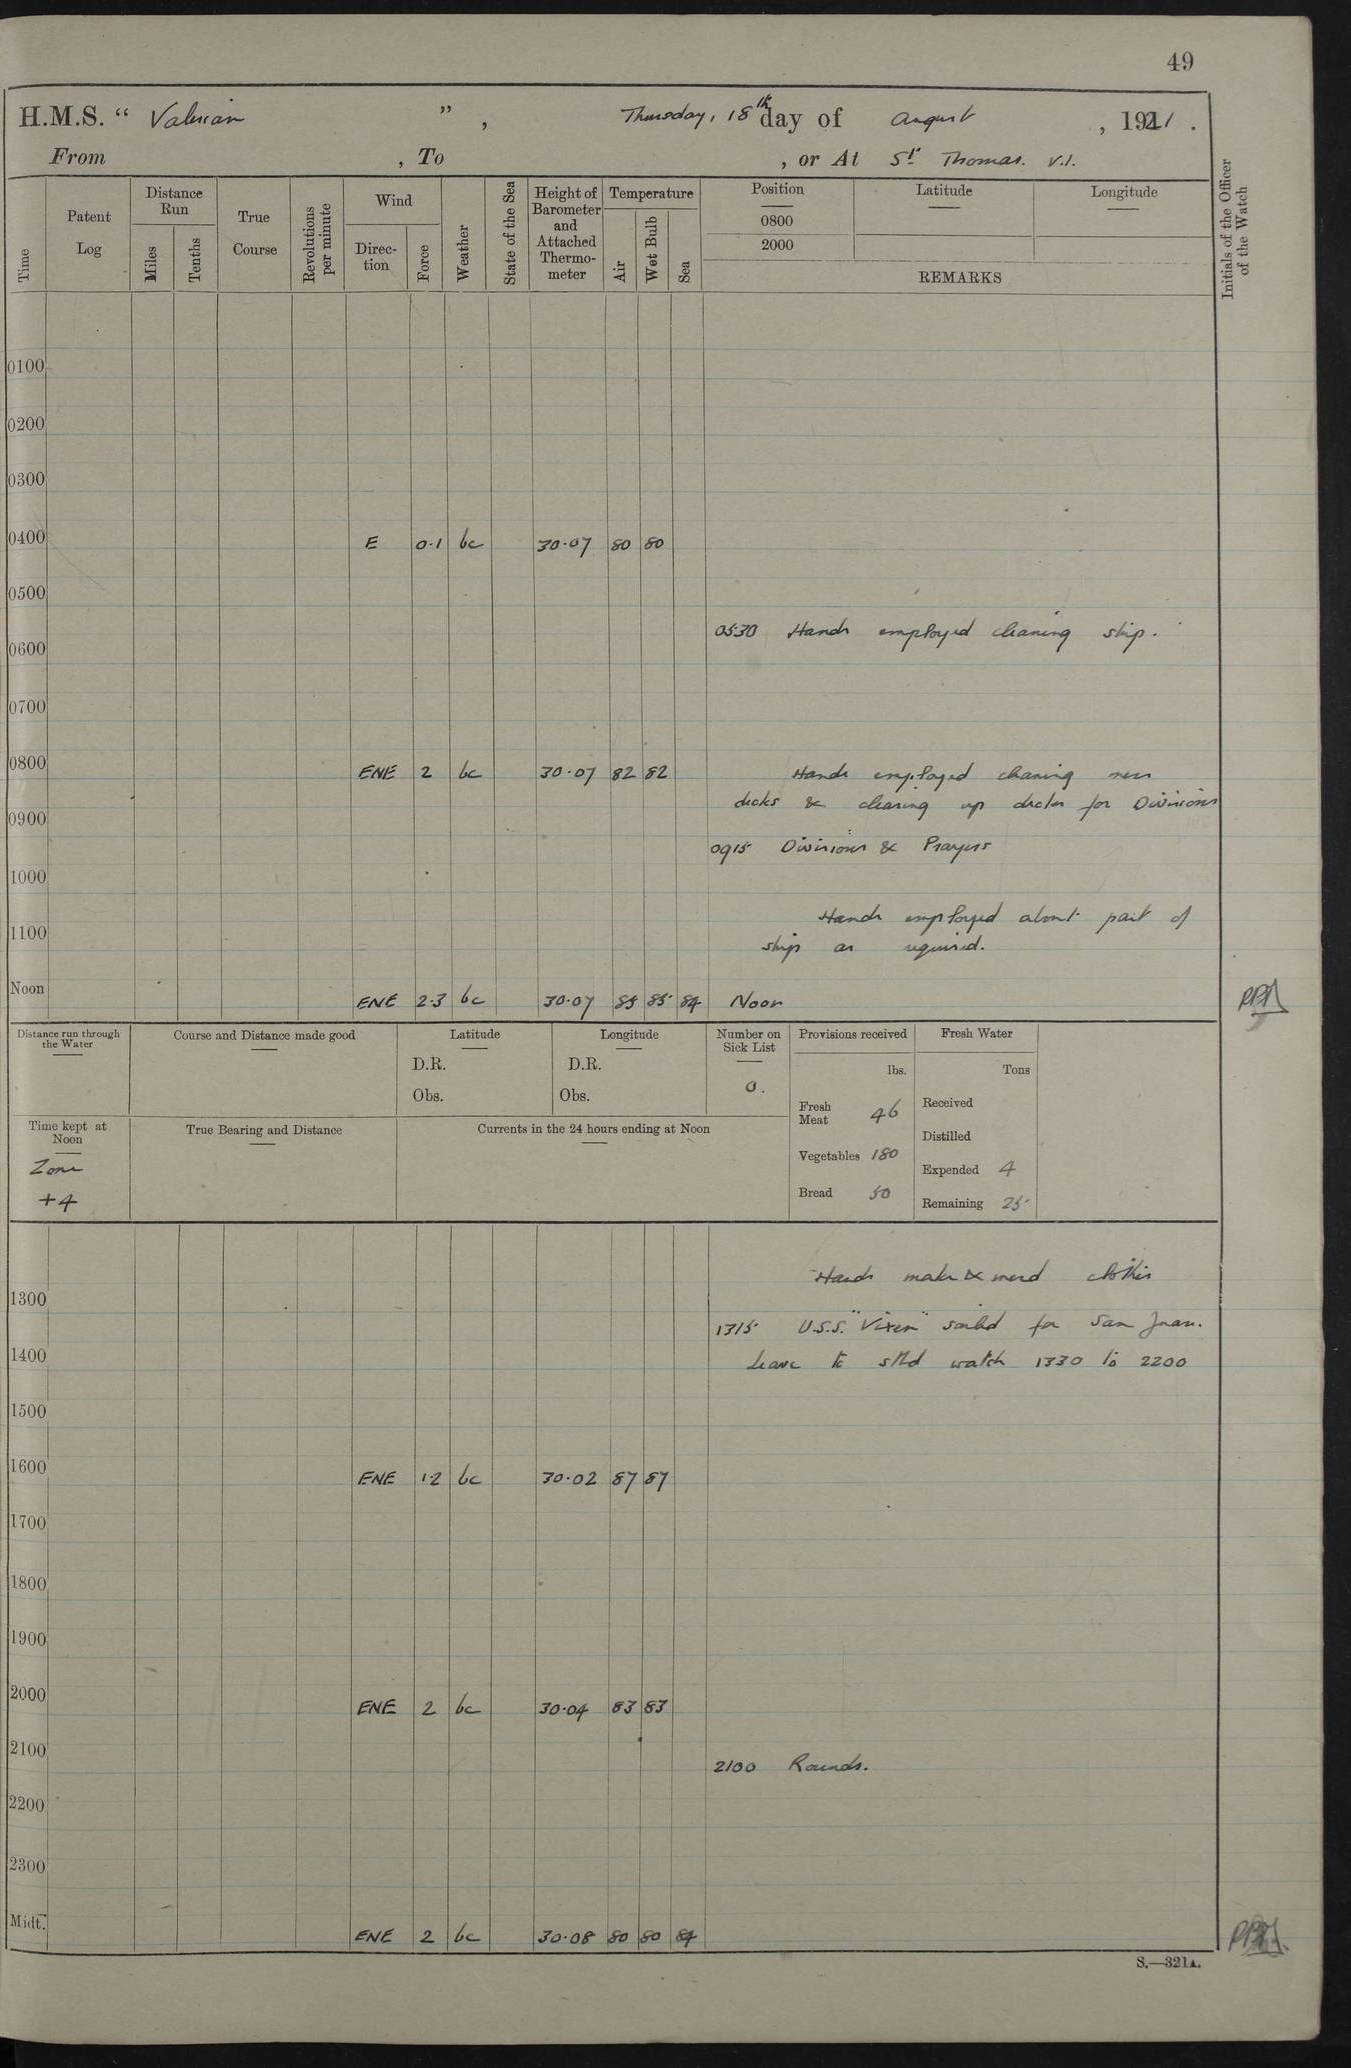 49
H.M.S. “ Valerian ” , Thursday, 18th day of August , 1921 .
From , To , or At St Thomas. V.I.
Time
Patent Log
Distance Run
Miles
Tenths
True Course
Revolutions per minute
Wind
Direc-tion
Force
Weather
State of the Sea
Height of Barometer and Attached Thermo-meter
Temperature
Air
Wet Bulb
Sea
Position Latitude Longitude
0800
2000
REMARKS
Initials of the Officer of the Watch
0100
0200
0300
0400 E 0·1 bc 30·07 80 80
0500
0530 Hands employed cleaning ship.
0600
0700
0800 ENE 2 bc 30·07 82 82 Hands employed cleaning mess
decks & clearing up decks for Divisions
0900
0915 Divisions & Prayers
1000
Hands employed about part of
1100
ship as required.
Noon ENE 2·3 bc 30·07 85 85 84 Noon
Distance run through the Water
Course and Distance made good
Latitude
D.R.
Obs.
Longitude
D.R.
Obs.
Number on Sick List
0.
Provisions received
lbs.
Fresh Meat 46
Vegetables 180
Bread 50
Fresh Water
Tons
Received
Distilled
Expended 4
Remaining 25
Time kept at Noon
Zone
+4
True Bearing and Distance
Currents in the 24 hours ending at Noon
Hands make & mend clothes
1300
1315 U.S.S. "Vixen" sailed for San Juan.
1400
Leave to stbd watch 1330 to 2200
1500
1600 ENE 1·2 bc 30·02 87 87
1700
1800
1900
2000 ENE 2 bc 30·04 83 83
2100
2100 Rounds.
2200
2300
Midt. ENE 2 bc 30·08 80 80 84
S.—321A.